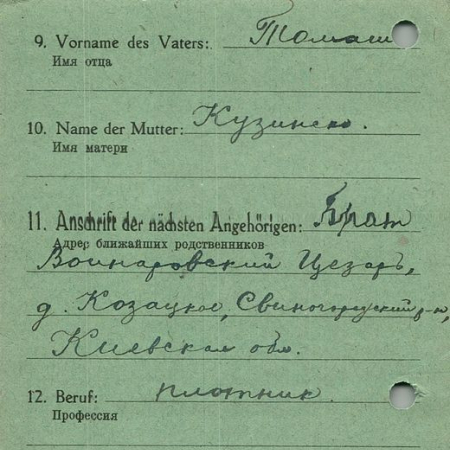 9. Vorname des Vaters: Томаш
Имя отца
10. Name der Mutter: Кузинско.
Имя матери
11. Anschrift der nächsten Angehörigen: Брат
Адрес ближайших родственников
Войнаровский Цезарь,
д. Козацкое, Свиногородский р-н,
Киевская обл.
12. Beruf: плотник.
Профессия